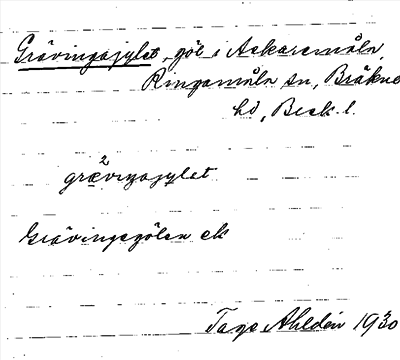 Grävingajylet, göl i Askaremåla,
Ringamåla sn, Bräkne
hd, Blek. l.
grävıŋajylet
Grävingegölen ek
Tage Ahldén 1930